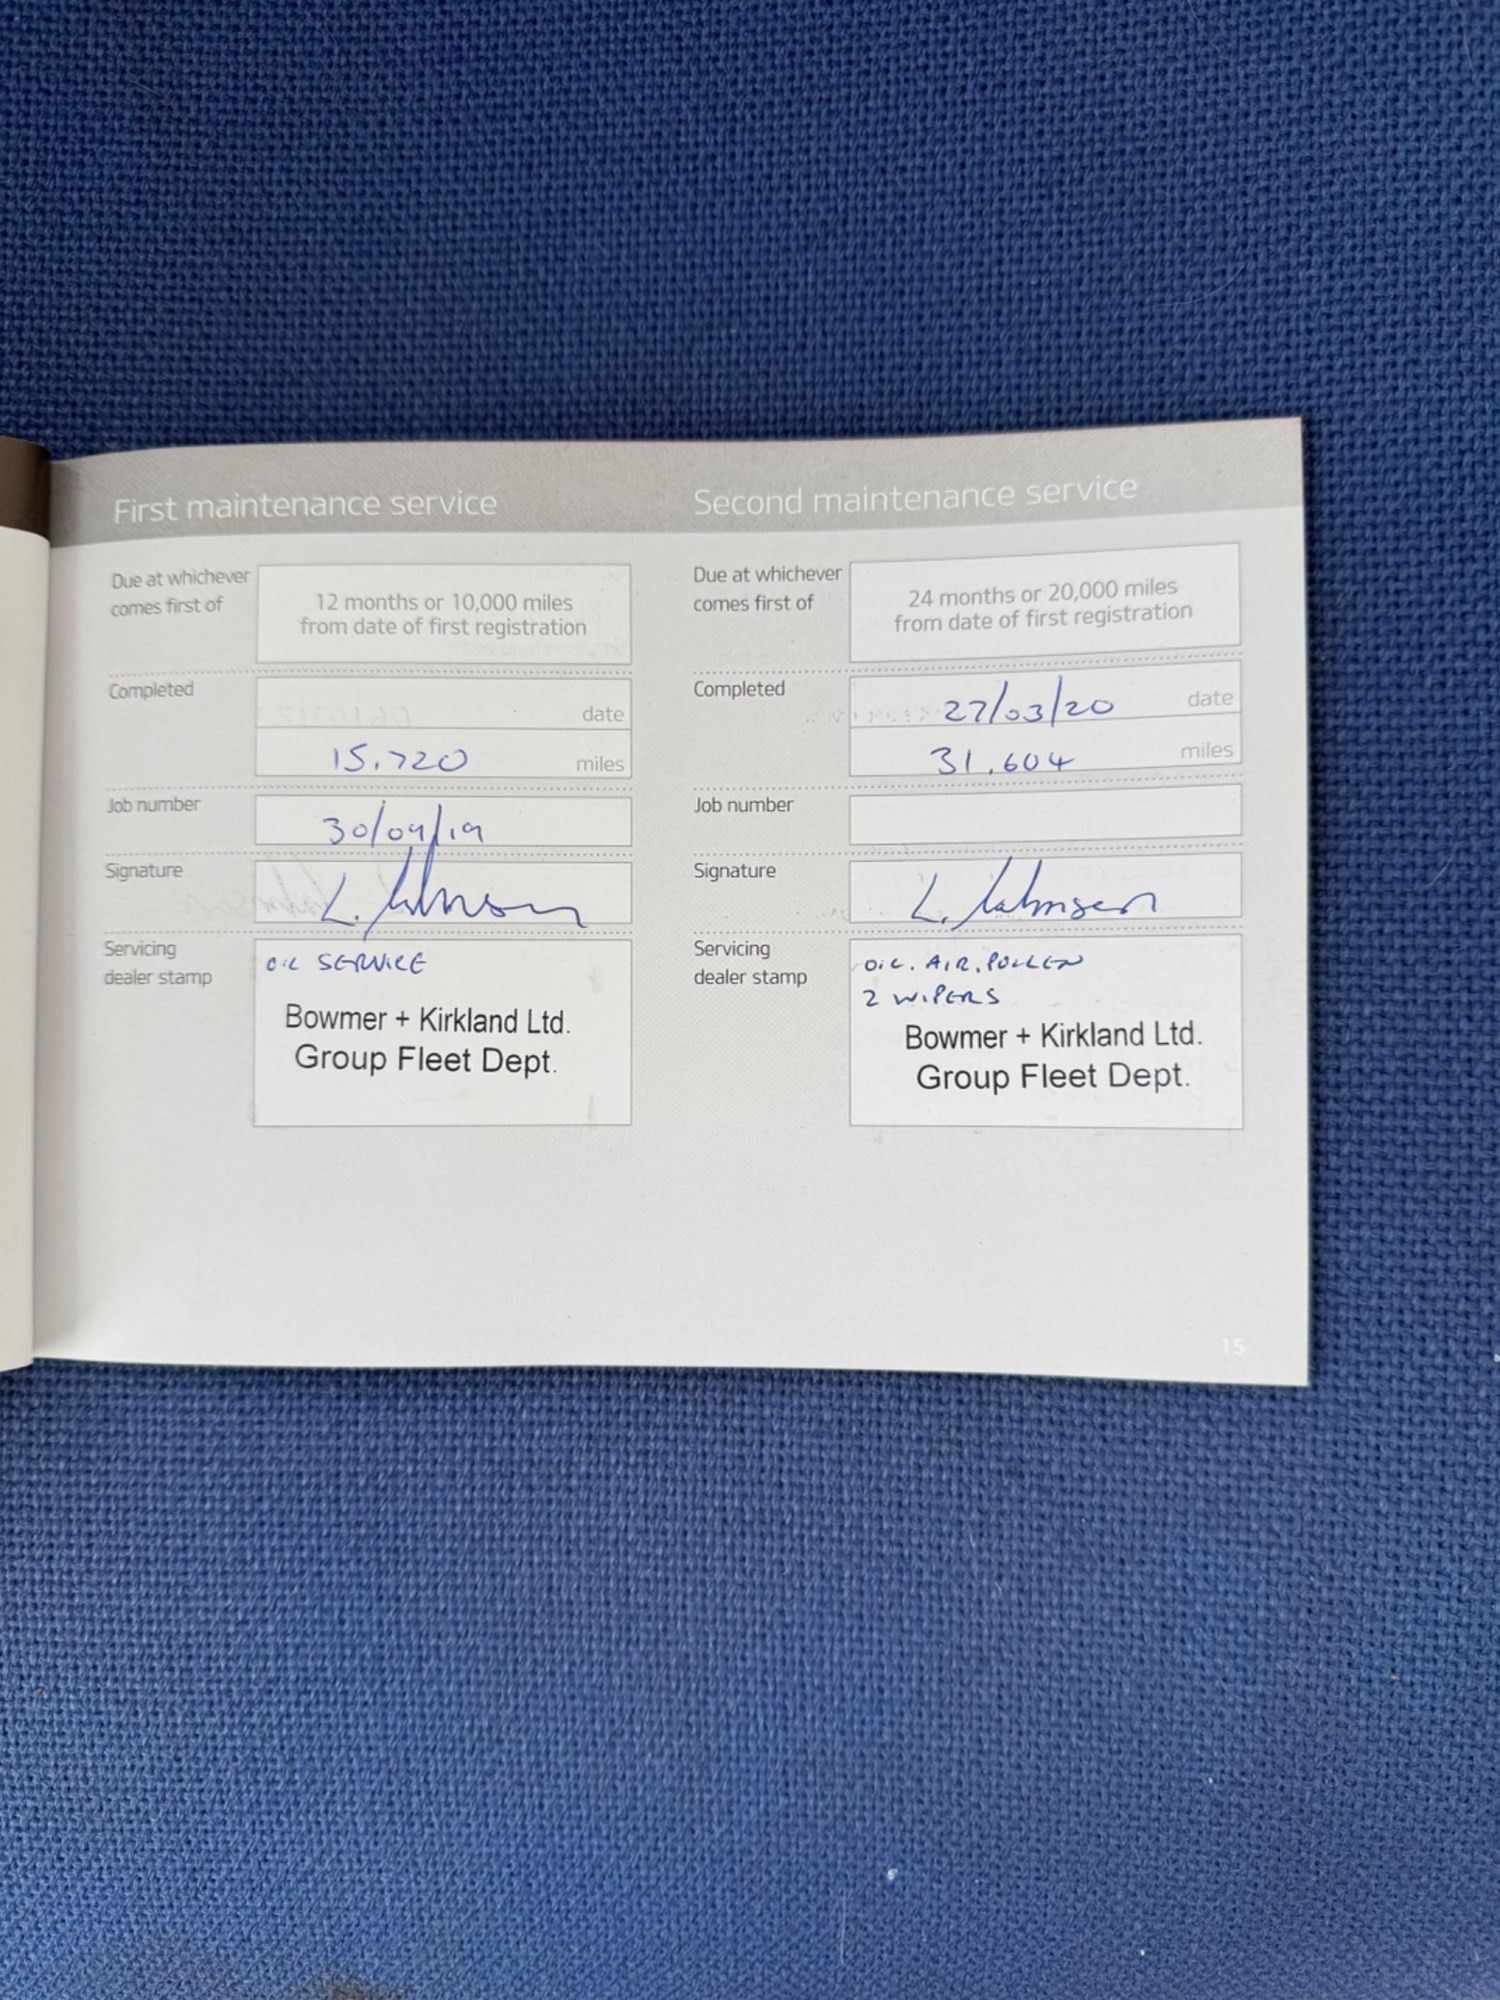 First maintenance service
Due at whichever
comes first of
12 months or 10,000 miles
from date of first registration
Completed
date
15,720
miles
Job number
30/09/19
Signature
L. Johnson
Servicing
dealer stamp
OIL SERVICE
Bowmer + Kirkland Ltd.
Group Fleet Dept.
Second maintenance service
Due at whichever
comes first of
24 months or 20,000 miles
from date of first registration
Completed
27/03/20
date
31,604
miles
Job number
Signature
L. Johnson
Servicing
dealer stamp
OIL. AIR. POLLEN
2 WIPERS
Bowmer + Kirkland Ltd.
Group Fleet Dept.
15